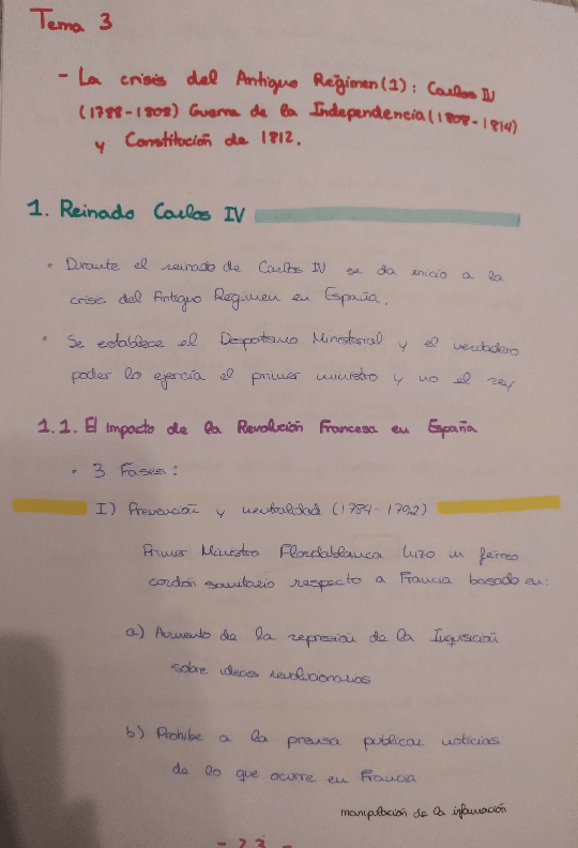 Tema 3
- La crisis del Antiguo Regimen (1): Carlos IV
(1788-1808) Guerra de la Independencia (1808-1814)
y Constitución de 1812.
1. Reinado Carlos IV
• Durante el reinado de Carlos IV se da inicio a la
crisis del Antiguo Regimen en España.
• Se establece el Despotismo Ministerial y el verdadero
poder lo ejercía el primer ministro y no el rey
1.1. El Impacto de la Revolución Francesa en España
• 3 Fases:
I) Prevención y neutralidad (1789-1792)
Primer Ministro Floridablanca hizo un ferreo
cordón sanitario respecto a Francia basado en:
a) Aumento de la represión de la Inquisición
sobre ideas revolucionarias
b) Prohibe a la prensa publicar noticias
de lo que ocurre en Francia
manipulación de la información
- 23 -